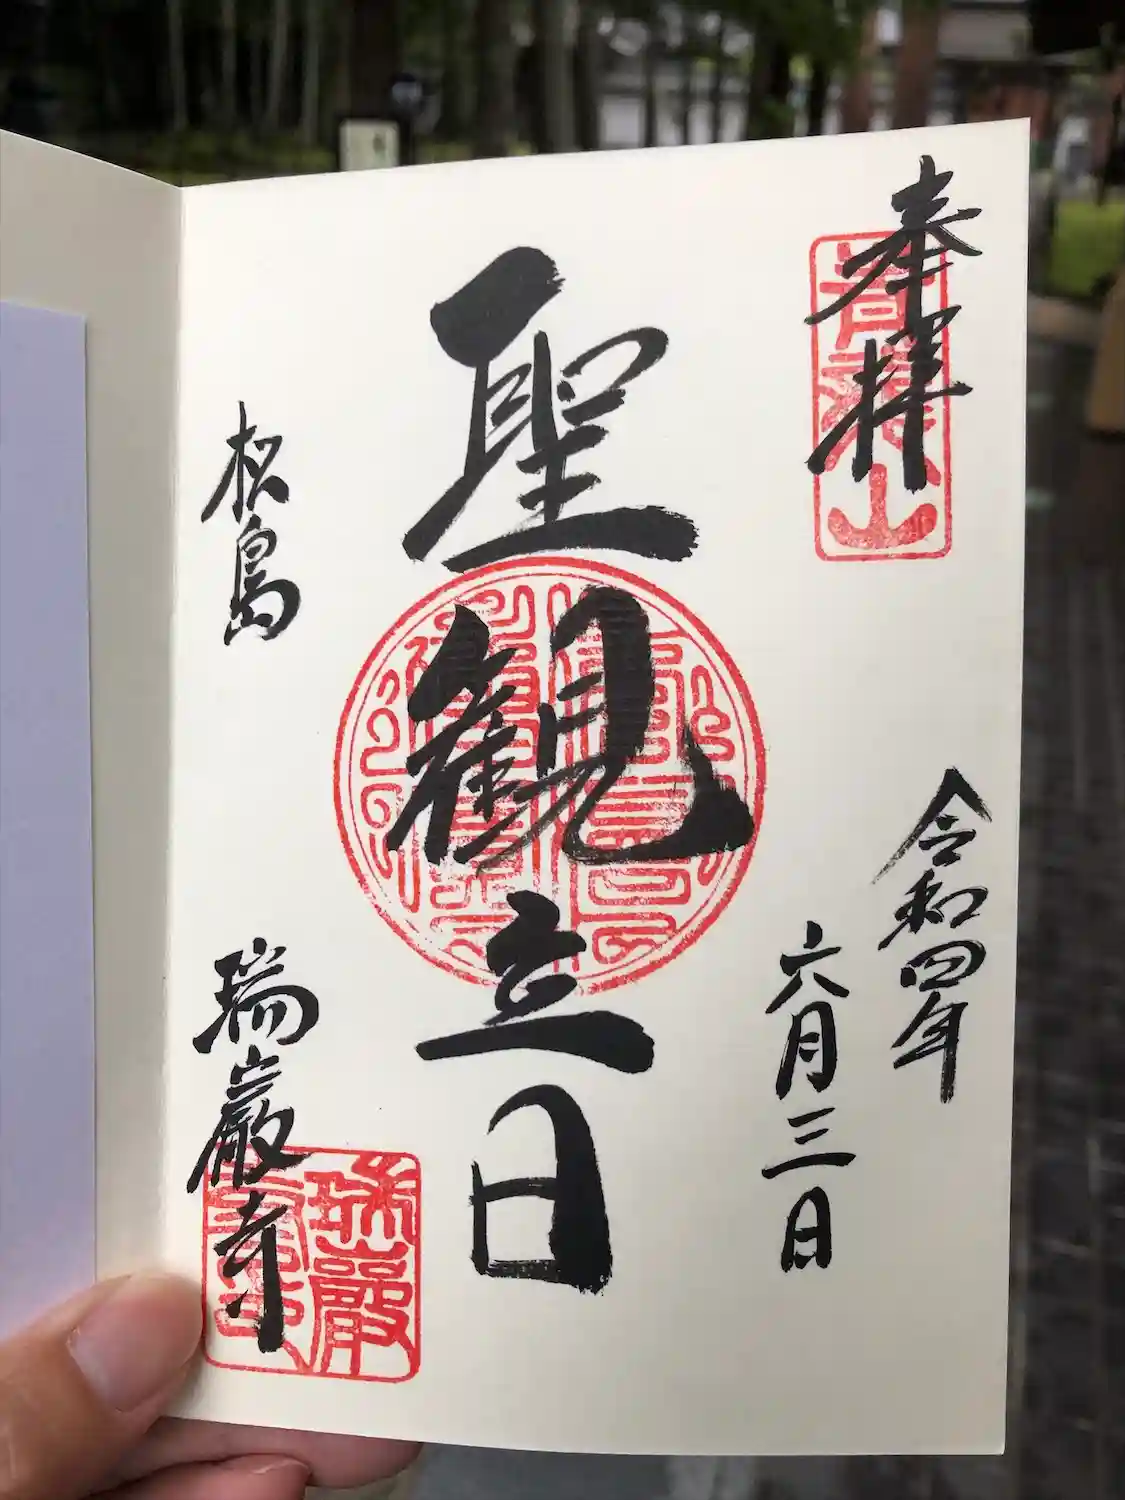 奉拝
青龍山
令和四年
六月三日
聖観音
松島
瑞巌寺
瑞巌